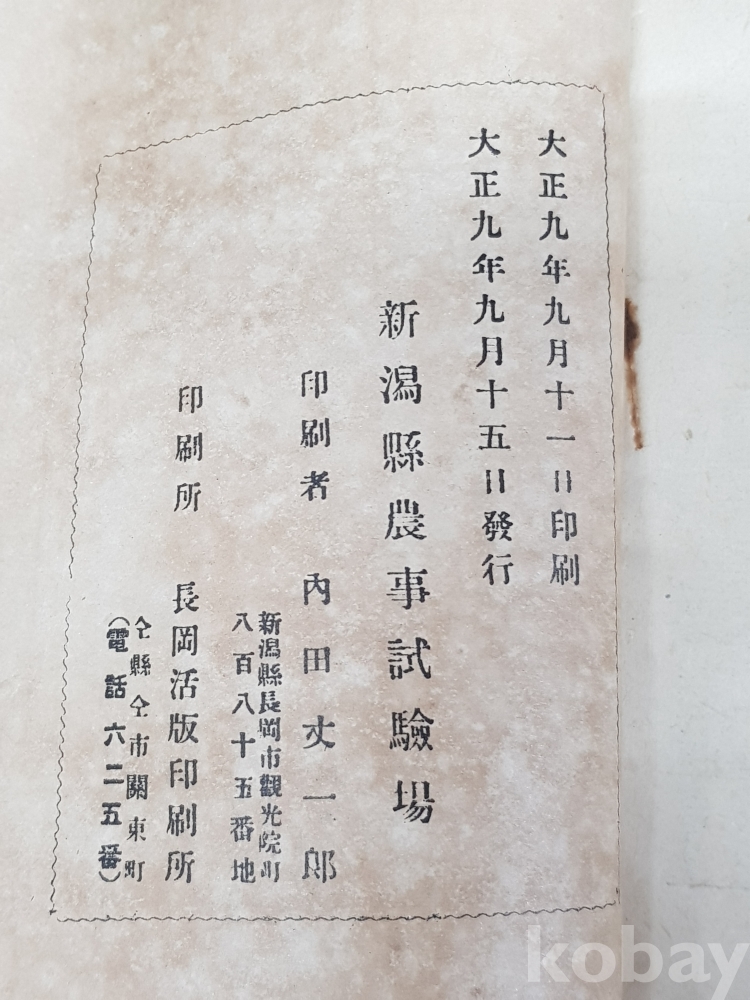 大正九年九月十一日印刷
大正九年九月十五日發行
新潟縣農事試驗場
印刷者 內田丈一郎
新潟縣長岡市觀光院町
八百八十五番地
印刷所 長岡活版印刷所
仝縣仝市關東町
(電話六二五番)
kobay